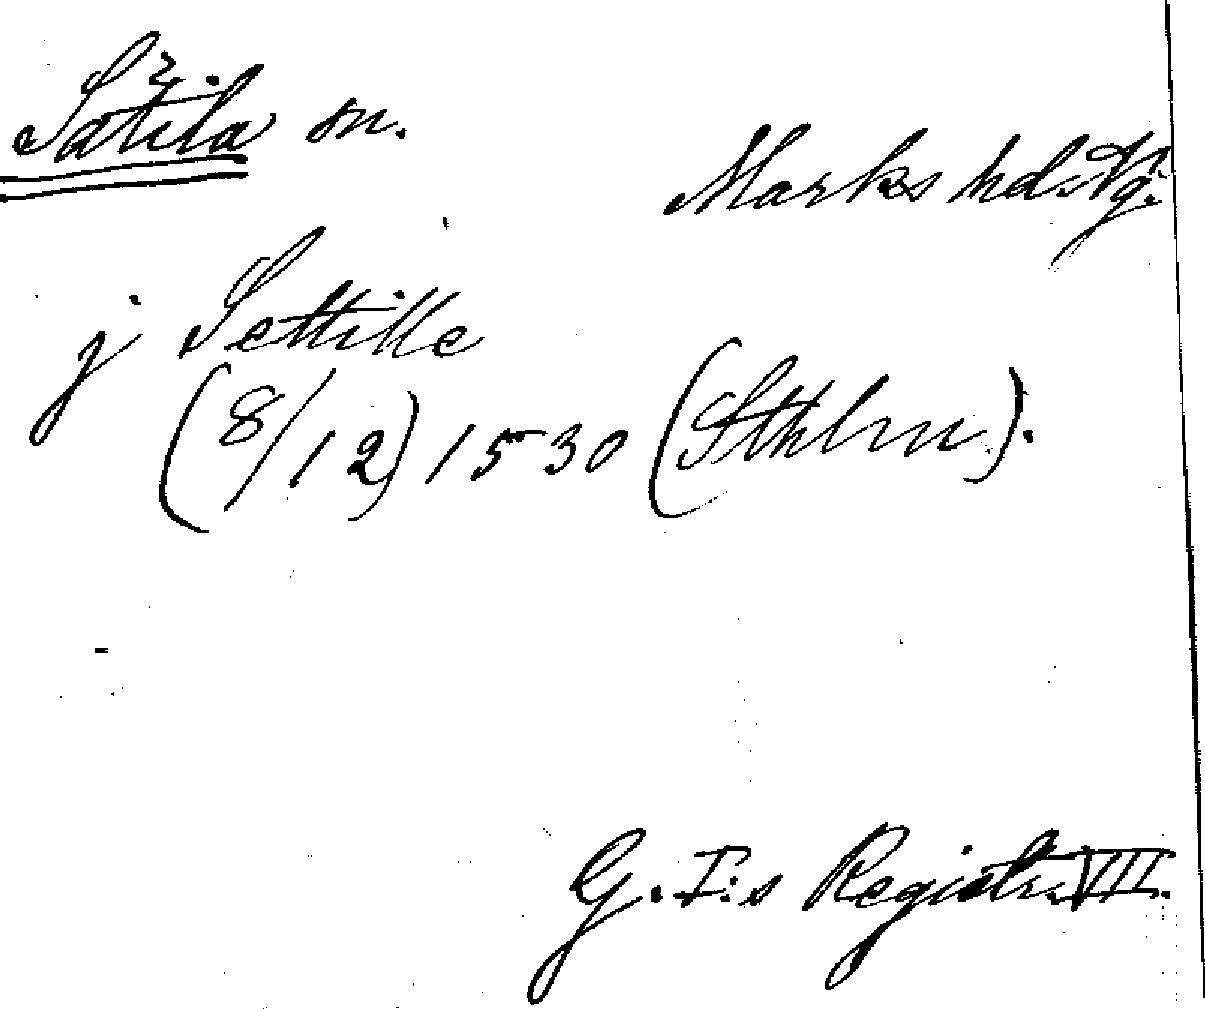 Sätila sn.
Marks hd. Vg.
j Settille
(8/12) 1530 (Sthlm).
G. I:s Registr. VII.